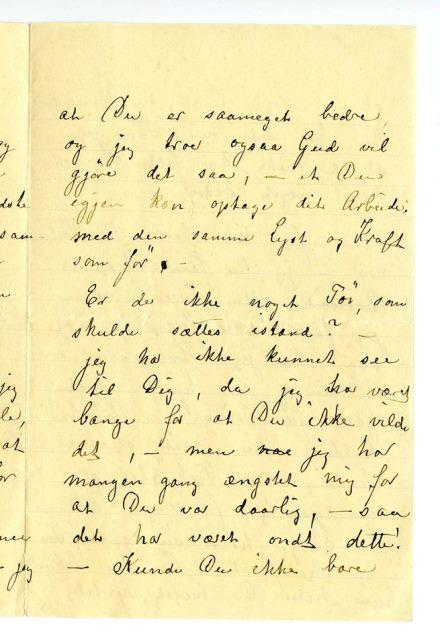 at Du er saameget bedre,
og jeg troe ogsaa Gud vil
gjöre det saa, – at Du
igjen kan optage dit Arbeide
med den samme Lyst og Kraft
som för". –
Er de ikke noget Töi, som
skulde sættes istand? –
jeg har ikke kunnet see
til Dig, da jeg har været
bange for at Du ikke vilde
det, – men jeg har
mangen gang ængstet mig for
at Du var daarlig, – saa
det har været ondt dette!
– Kunde Du ikke bare